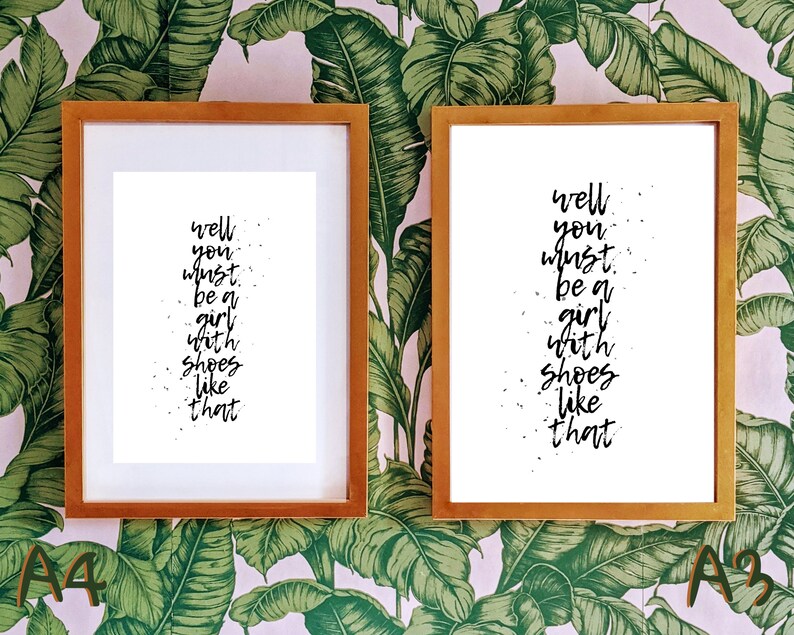 well
you
must
be a
girl
with
shoes
like
that
well
you
must
be a
girl
with
shoes
like
that
A4
A3